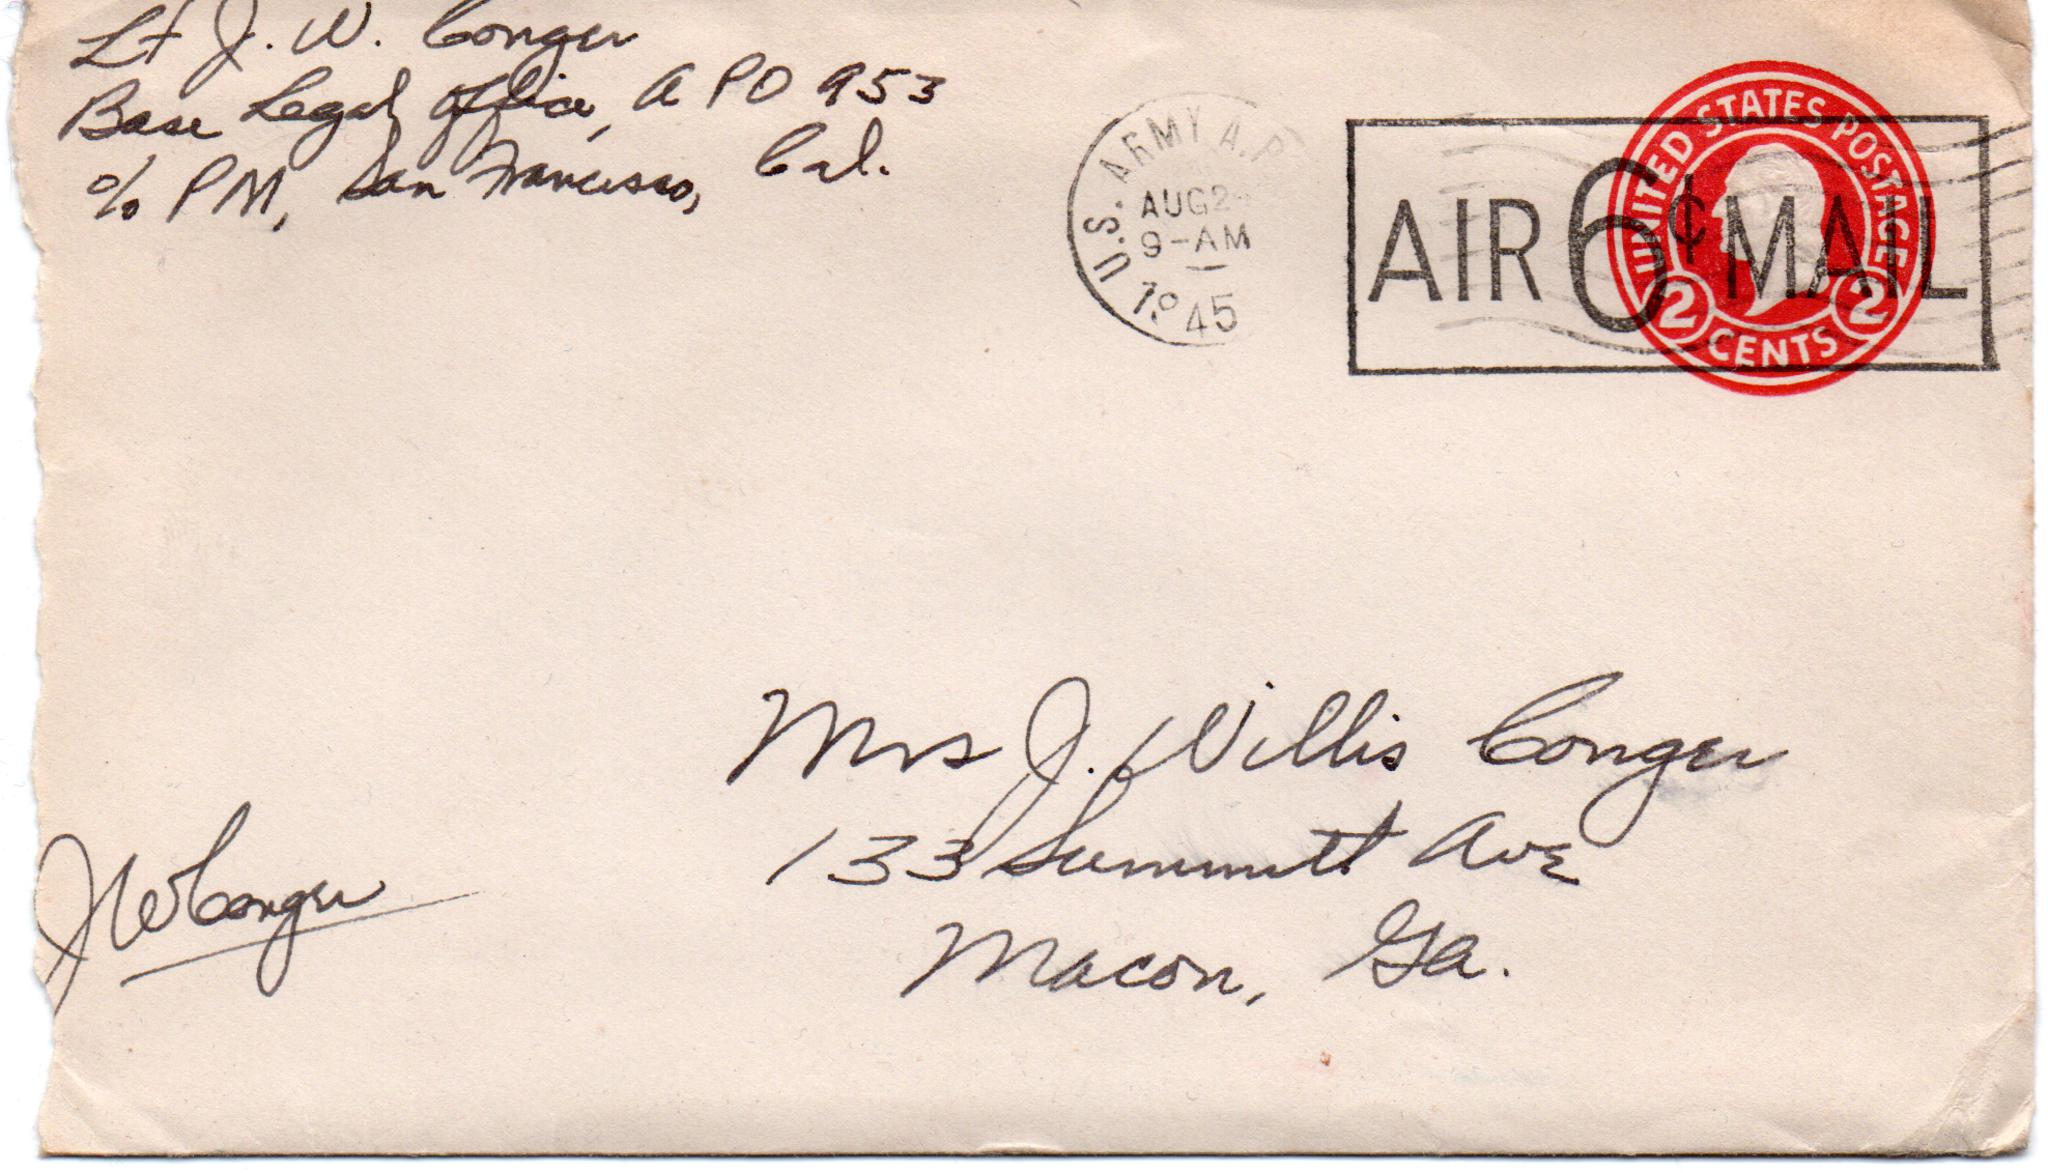 Lt J. W. Conger
Base Legal Office, APO 953
c/o PM, San Francisco, Cal.
U.S. ARMY A.P
AUG 2
9-AM
1945
AIR 6¢ MAIL
UNITED STATES POSTAGE
2 CENTS 2
Mrs J. Willis Conger
133 Summitt Ave
Macon, Ga.
JWConger